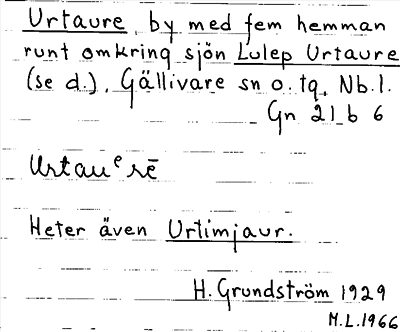 Urtaure, by med fem hemman
runt omkring sjön Lulep Urtaure
(se d.), Gällivare sn o. tg, Nb.l.
Gn 21 b 6
Urtauᵉrē
Heter även Urtimjaur.
H. Grundström 1929
M.L. 1966